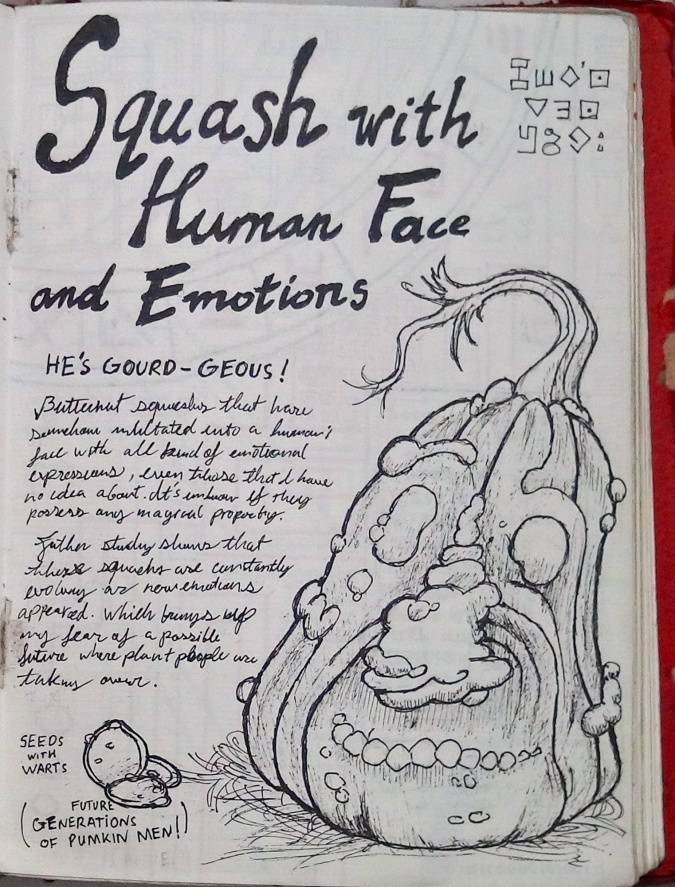 Squash with
Human Face
and Emotions
HE'S GOURD-GEOUS!
Butternut squashes that have
somehow mutated into a human's
face with all kind of emotional
expressions, even those that I have
no idea about. It's unknown if they
possess any magical property.
Futher study shows that
these squashs are constantly
evolving as new emotions
appeared. Which brings up
my fear of a possible
future where plant people are
taking over.
SEEDS
WITH
WARTS
(FUTURE
GENERATIONS
OF PUMKIN MEN!)